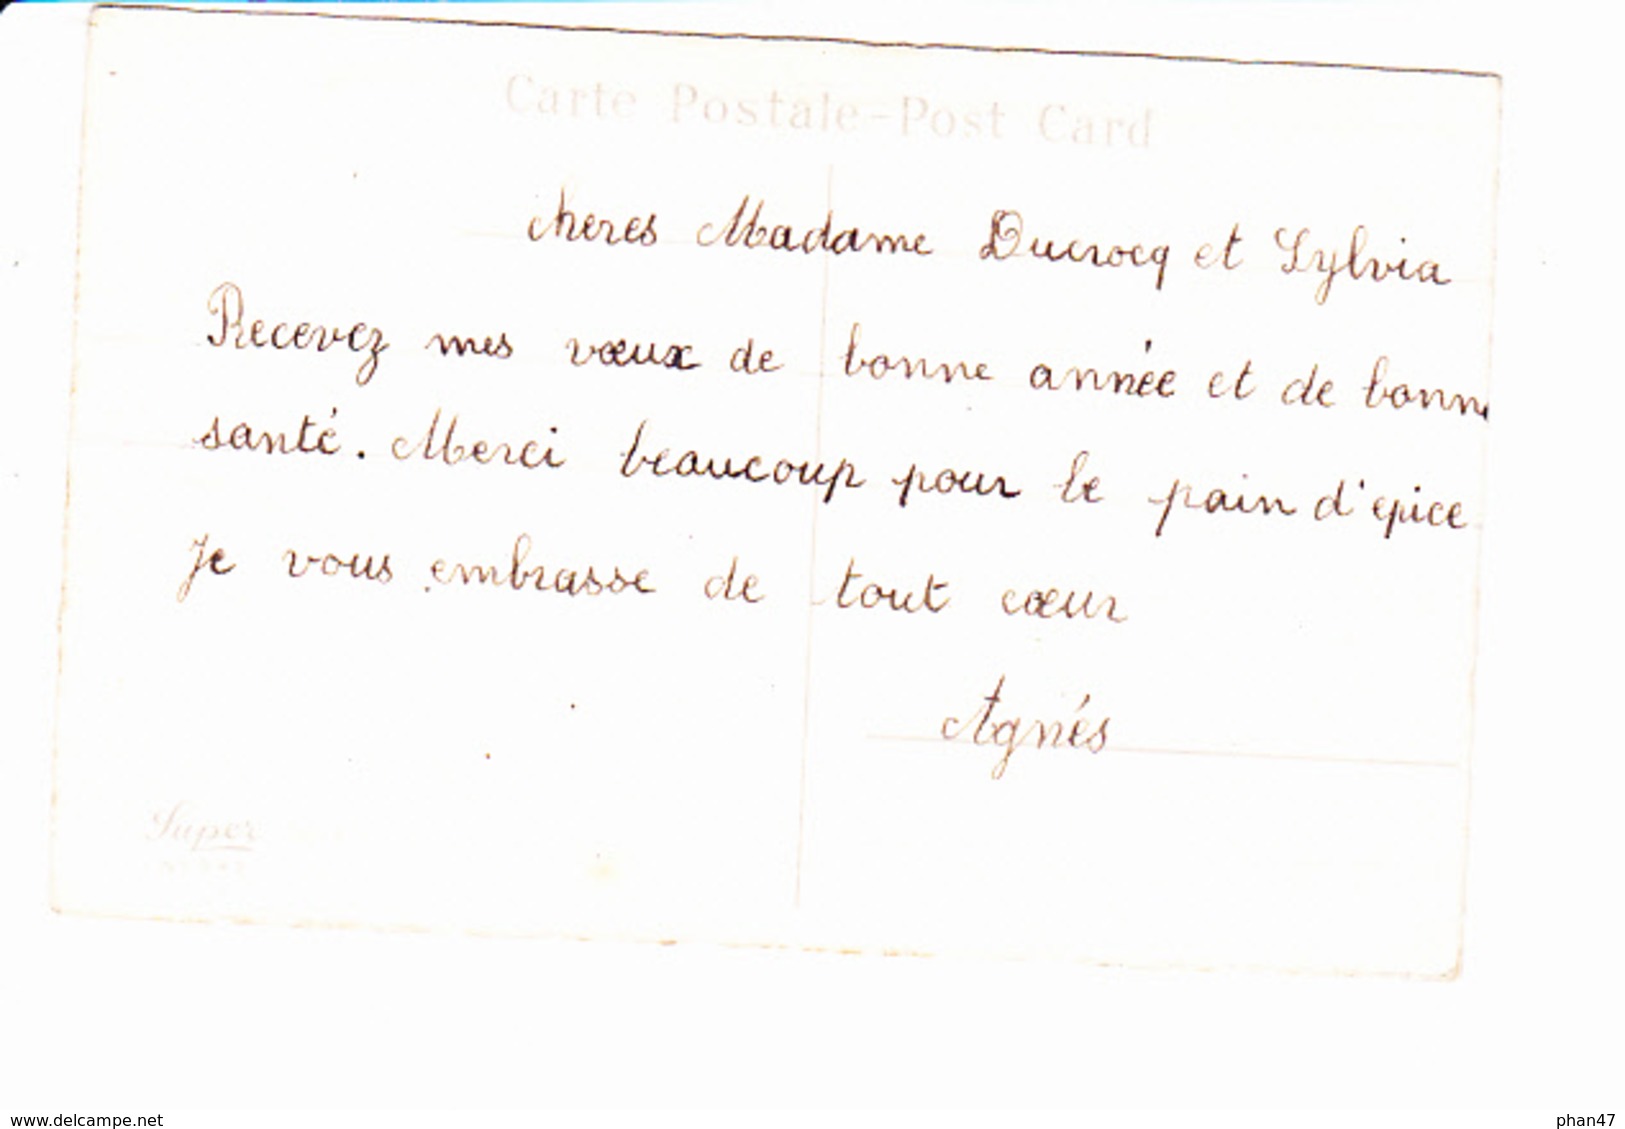 Carte Postale-Post Card
cheres Madame Ducrocq et Sylvia
Recevez mes vœux de bonne année et de bonne
santé. Merci beaucoup pour le pain d'epice
Je vous embrasse de tout cœur
Agnés
Super
www.delcampe.net
phan47